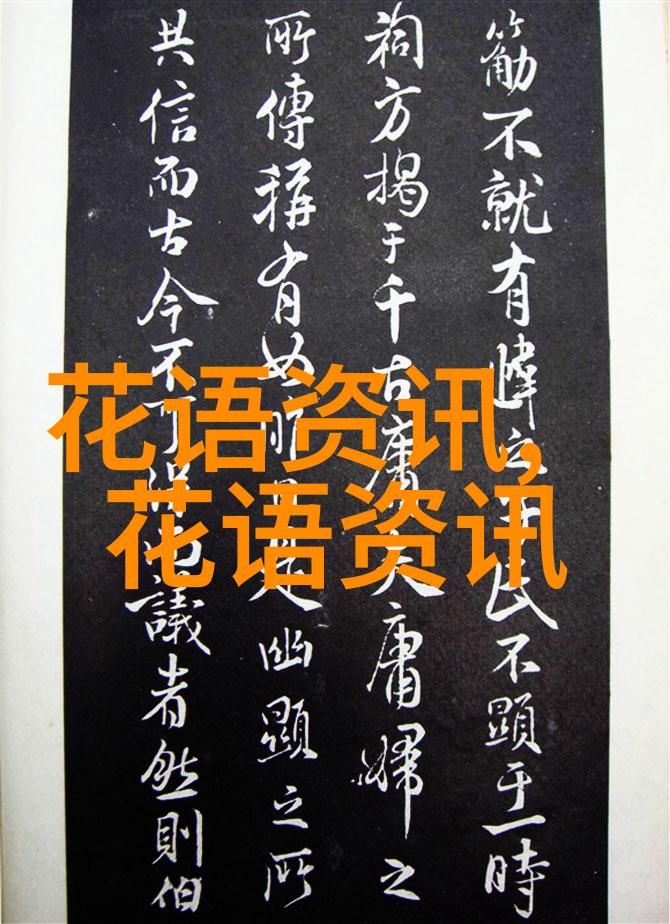 不就有之民不顯于一時
祠方揭于千古庸夫庸婦之
所傳稱有是幽顯之所
共信而古今不可也議者然則伯
花语资讯,
花语资讯